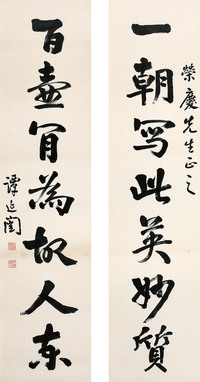 一朝写此英妙質
榮慶先生正之
百壺眉為故人東
譚延闓